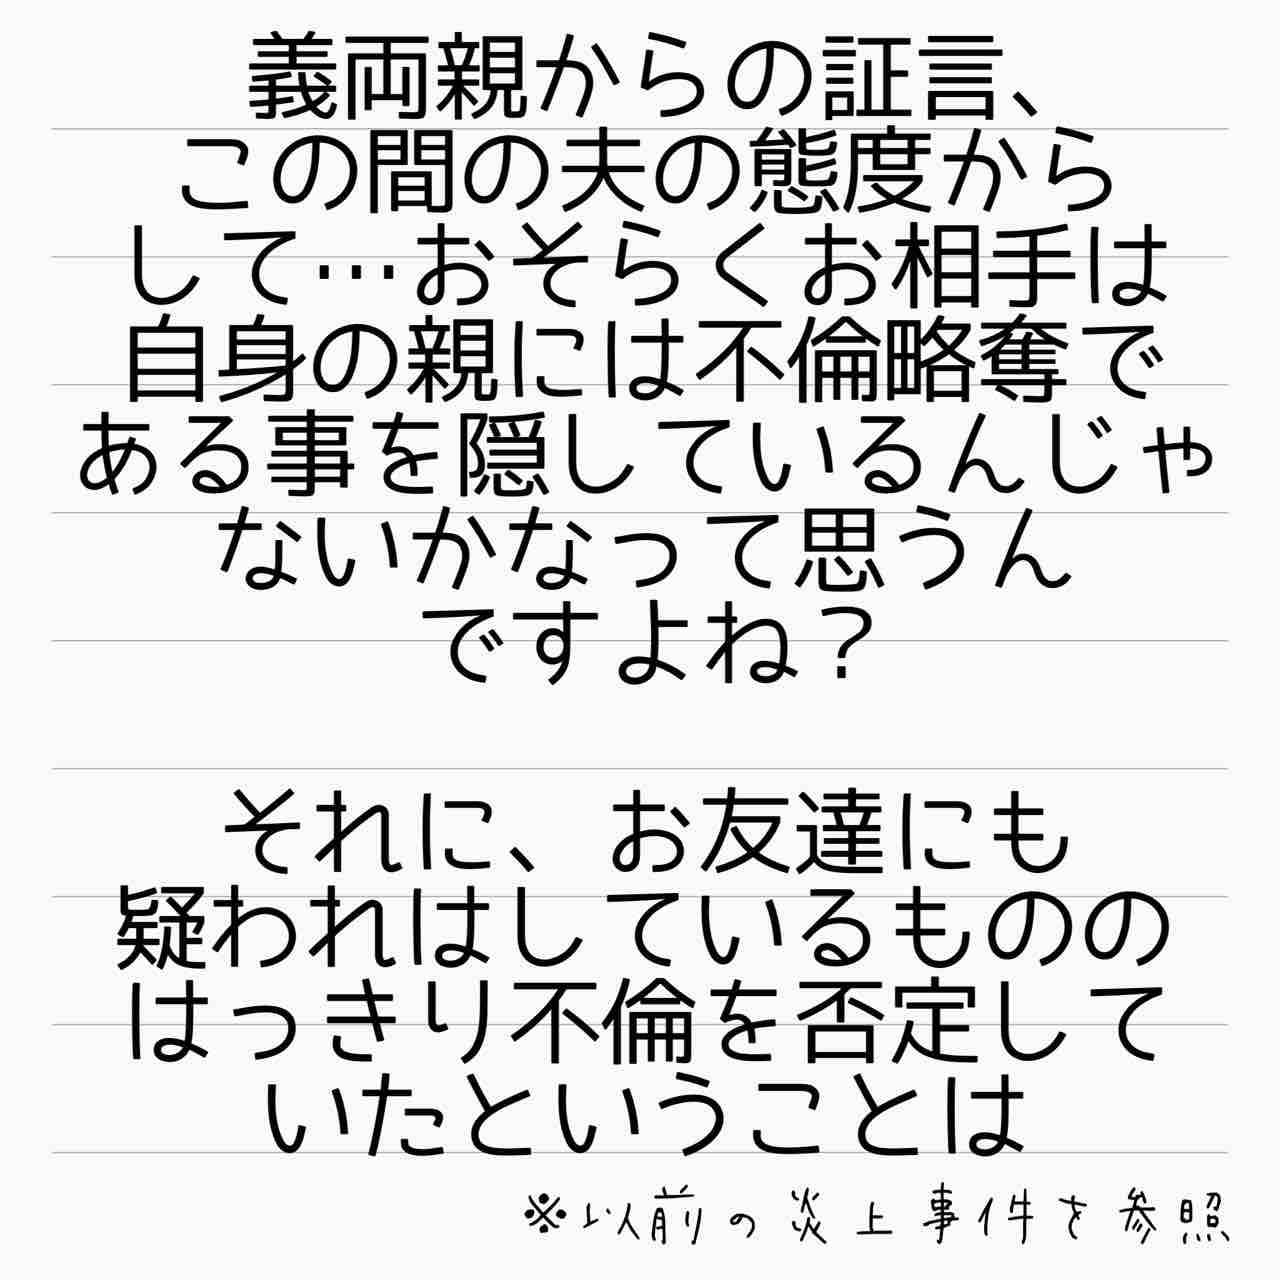 義両親からの証言、
この間の夫の態度から
して…おそらくお相手は
自身の親には不倫略奪で
ある事を隠しているんじゃ
ないかなって思うん
ですよね？
それに、お友達にも
疑われはしているものの
はっきり不倫を否定して
いたということは
※以前の炎上事件を参照